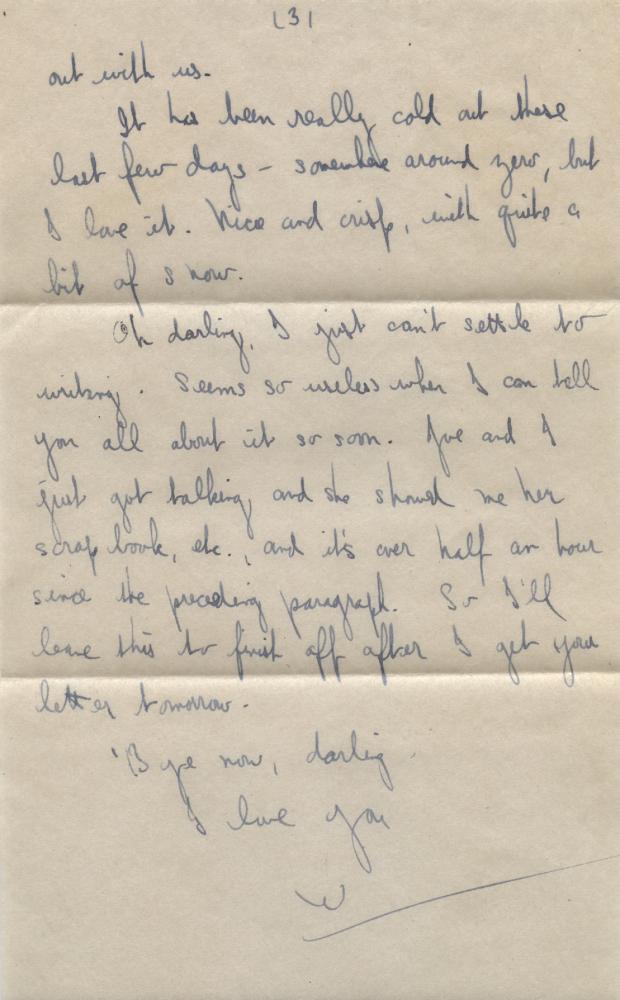 (3)
out with us.
It has been really cold out these
last few days - somewhere around zero, but
I love it. Nice and crisp, with quite a
bit of snow.
Oh darling, I just can't settle to
writing. Seems so useless when I can tell
you all about it so soon. Jve and I
just got talking, and she showed me her
scrap book, etc., and it's over half an hour
since the preceding paragraph. So I'll
leave this to finish off after I get your
letter tomorrow.
'Bye now, darling.
I love you
W